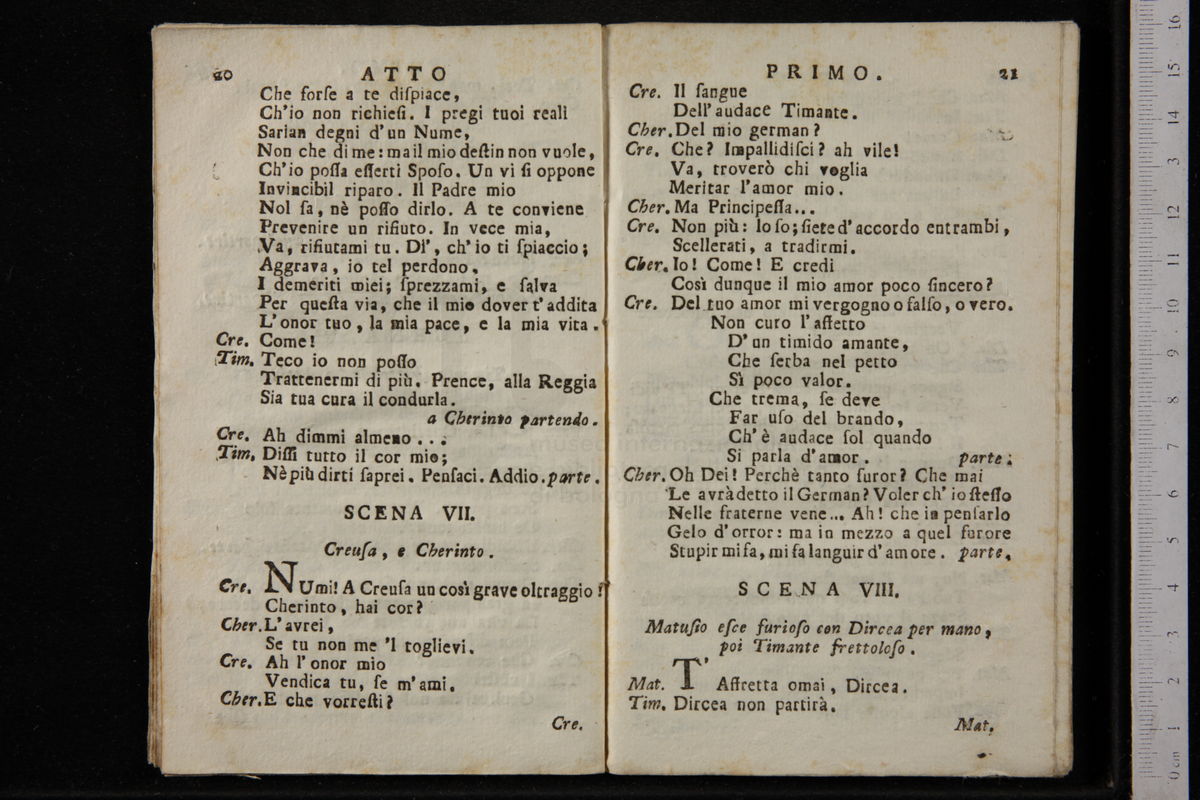 20 ATTO
Che forſe a te diſpiace,
Ch'io non richieſi. I pregi tuoi reali
Sarian degni d'un Nume,
Non che di me: ma il mio deſtin non vuole,
Ch'io poſſa eſſerti Spoſo. Un vi ſi oppone
Invincibil riparo. Il Padre mio
Nol ſa, nè poſſo dirlo. A te conviene
Prevenire un rifiuto. In vece mia,
Va, rifiutami tu. Di', ch'io ti ſpiaccio;
Aggrava, io tel perdono,
I demeriti miei; ſprezzami, e ſalva
Per queſta via, che il mio dover t'addita
L'onor tuo, la mia pace, e la mia vita.
Cre. Come!
Tim. Teco io non poſſo
Trattenermi di più. Prence, alla Reggia
Sia tua cura il condurla.
a Cherinto partendo.
Cre. Ah dimmi almeno...
Tim. Diſſi tutto il cor mio;
Nè più dirti ſaprei. Penſaci. Addio. parte.
SCENA VII.
Creuſa, e Cherinto.
Cre. NUmi! A Creuſa un così grave oltraggio?
Cherinto, hai cor?
Cher. L'avrei,
Se tu non me 'l toglievi.
Cre. Ah l'onor mio
Vendica tu, ſe m'ami.
Cher. E che vorreſti?
Cre.
PRIMO. 21
Cre. Il ſangue
Dell'audace Timante.
Cher. Del mio german?
Cre. Che? Impallidiſci? ah vile!
Va, troverò chi voglia
Meritar l'amor mio.
Cher. Ma Principeſſa...
Cre. Non più: lo ſo; ſiete d'accordo entrambi,
Scellerati, a tradirmi.
Cher. Io! Come! E credi
Così dunque il mio amor poco ſincero?
Cre. Del tuo amor mi vergogno o falſo, o vero.
Non curo l'affetto
D'un timido amante,
Che ſerba nel petto
Sì poco valor.
Che trema, ſe deve
Far uſo del brando,
Ch'è audace ſol quando
Si parla d'amor. parte.
Cher. Oh Dei! Perchè tanto furor? Che mai
Le avrà detto il German? Voler ch'io ſteſſo
Nelle fraterne vene... Ah! che in penſarlo
Gelo d'orror: ma in mezzo a quel furore
Stupir mi fa, mi fa languir d'amore. parte.
SCENA VIII.
Matuſio eſce furioſo con Dircea per mano,
poi Timante frettoloſo.
Mat. T'Affretta omai, Dircea.
Tim. Dircea non partirà.
Mat.